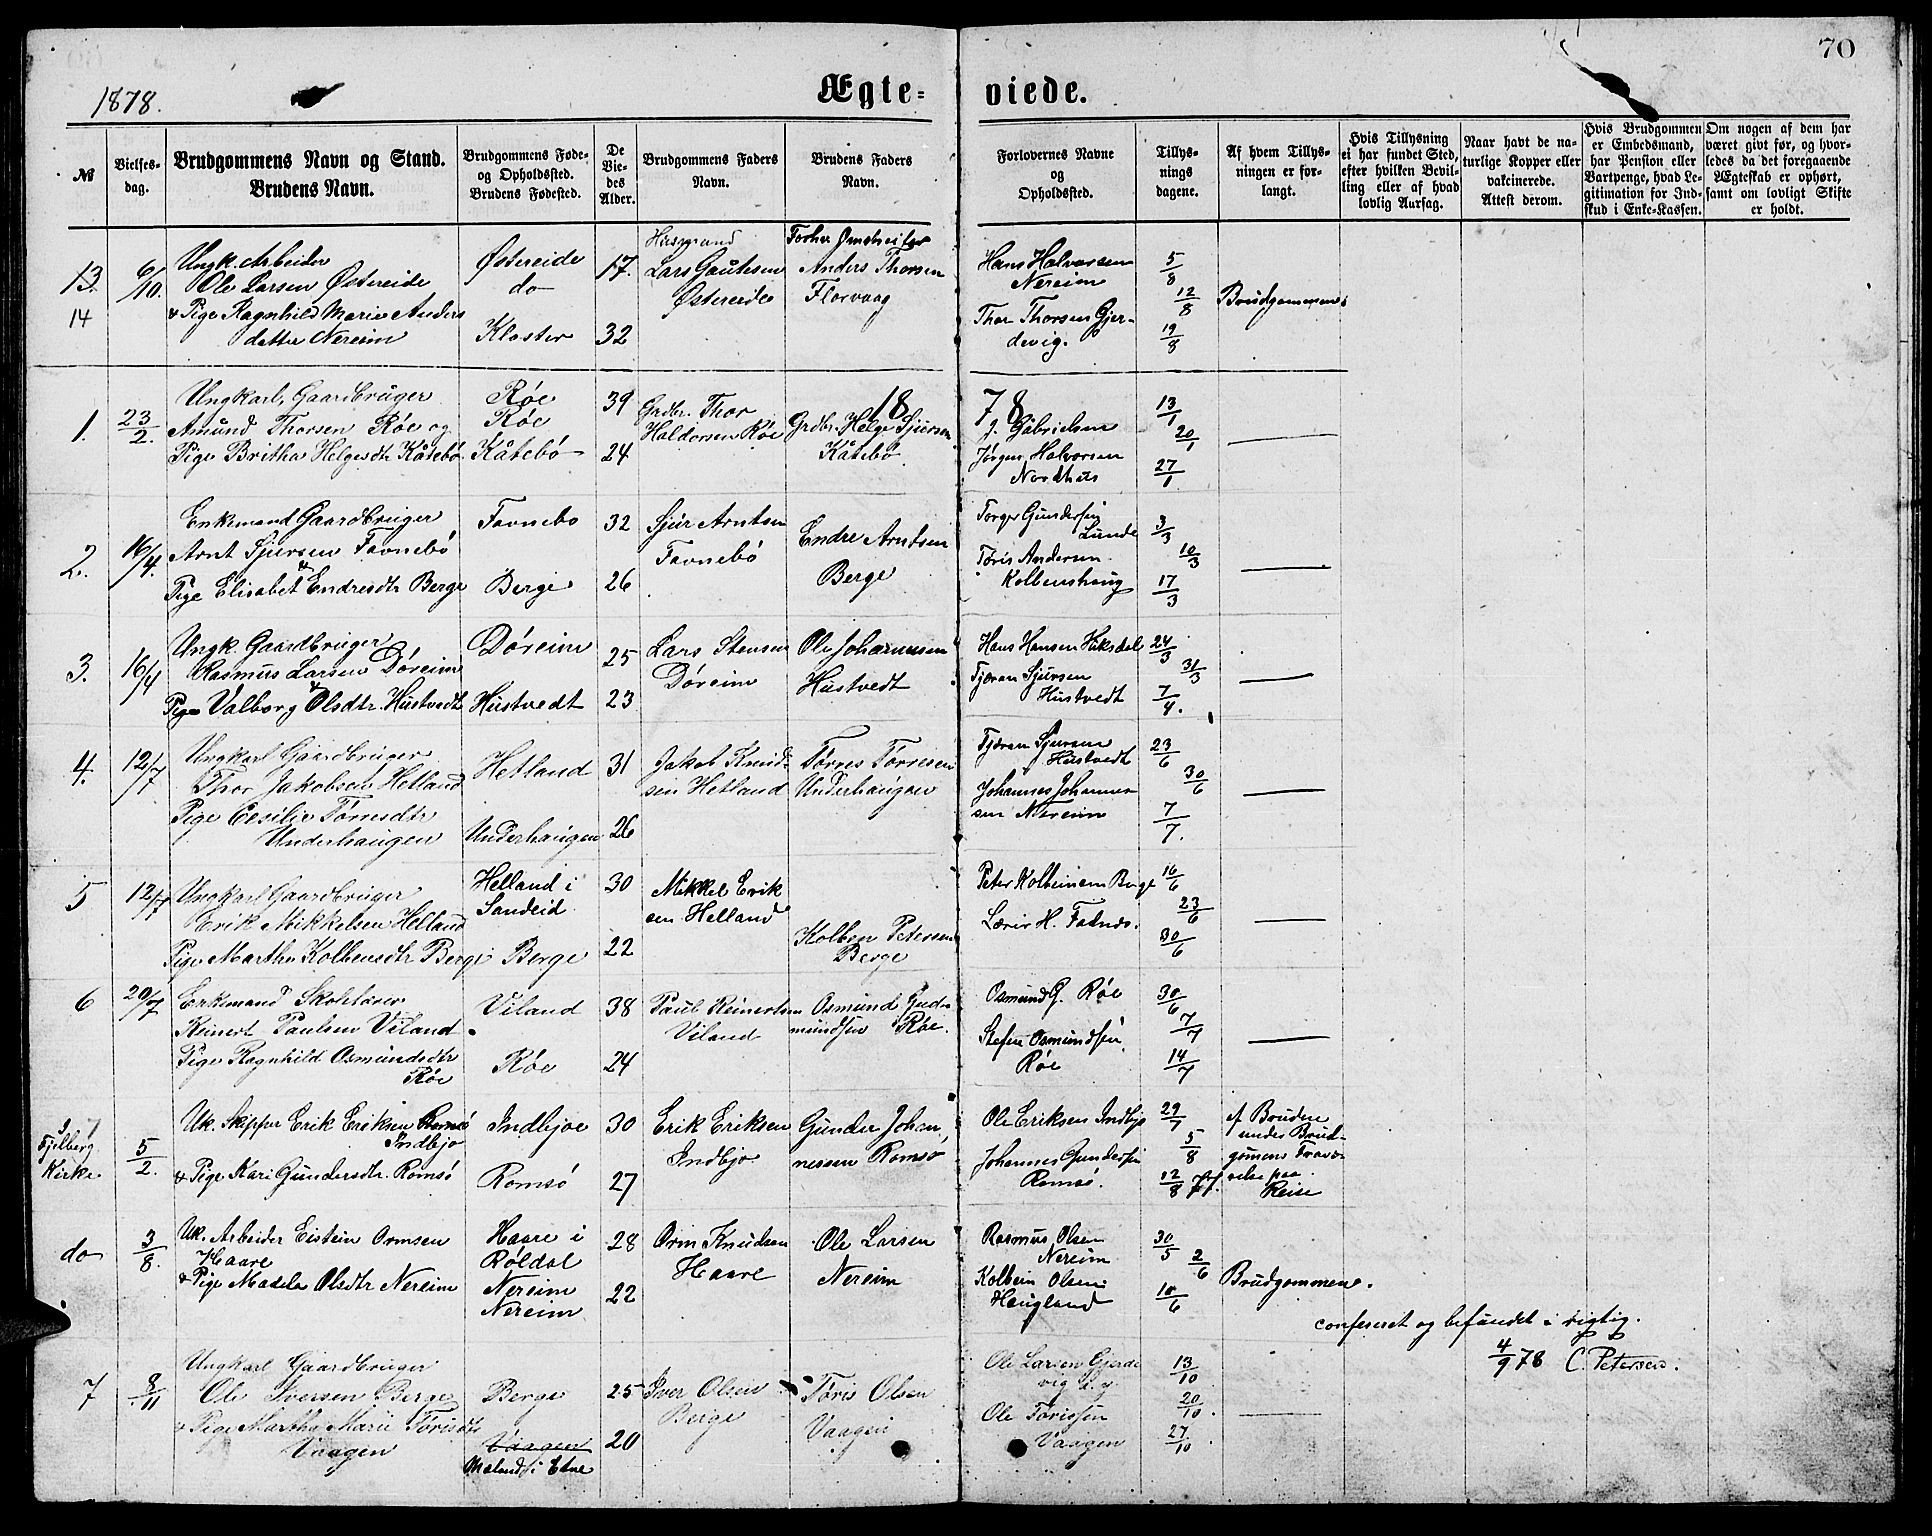 70
1878.
Ægte= viede.
№
Vielses-
dag.
Brudgommens Navn og Stand.
Brudens Navn.
Brudgommens Føde-
og Opholdssted.
Brudens Fødested.
De
Vie-
des
Alder.
Brudgommens Faders
Navn.
Brudens Faders
Navn.
Forlovernes Navne
og
Opholdssted.
Tillys-
nings
dagene.
Af hvem Tillys-
ningen er for-
langt.
Hvis Tillysning
ei har fundet Sted,
efter hvilken Bevil-
ling eller af hvad
lovlig Aarsag.
Naar havt de na-
turlige Kopper eller
vakcinerede.
Attest derom.
Hvis Brudgommen
er Embedsmand,
har Pension eller
Vartpenge, hvad Le-
gitimation for Ind-
skud i Enke-Kassen.
Om nogen af dem har
været givt før, og hvor-
ledes da det foregaaende
Ægteskab er ophørt,
samt om lovligt Skifte
er holdt.
13.
14
6/10.
Ungk. Arbeider
Ole Larsen Østereide
& Pige Ragnhild Marie Anders
datter Nereim
Østereide
do
Kloster
17.
32
Husmand
Lars Gautesen
Østereide
Anders Thorsen
Florvaag
Hans Halvorsen
Nereim
Thor Thorsen Gjer-
devig.
5/8
12/8
19/8
Brudgommen
1878
1.
23/2.
Ungkarl, Gaardbruger
Amund Thorsen Røe og
Pige Britha Helgesdtr Kåtebø
Røe
Røe
Kåtebø
39
24
Grdbr. Thor
Haldorsen Røe
Grdbr. Helge Sjursen
Kåtebø
J. Gabrielsen
Jørgen Halvorsen
Nordhus
13/1
20/1
27/1
2.
16/4.
Enkemand Gaardbruger
Arnt Sjursen Favnebø
&
Pige Elisabet Endresdtr Berge
Favnebo
Berge
32
26
Sjur Arntsen
Favnebø
Endre Arntsen
Berge
Torger Gundersen
Lunde
Tøris Andersen
Kolbenshaug
3/3
10/3
17/3
3.
16/4
Ungk. Gaardbruger
Rasmus Larsen Døreim
&
Pige Valborg Olsdtr. Hustvedt
Døreim
Hustvedt
25
23
Lars Stensen
Døreim
Ole Johannesen
Hustvedt
Hans Hansen Hiksdal
Tjæran Sjursen
Hustvedt
24/3
31/3
7/4.
4.
12/7
Ungkarl Gaardbruger
Thor Jakobsen Hetland
Pige Cesilie Tørresdtr
Underhaugen
Hetland
Underhaugen
31
26
Jakob Knud-
sen Hetland
Tørres Tørresen
Underhaugen
Tjæran Sjursen
Hustvedt
Johannes Johannes
sen Nereim
23/6
30/6
7/7.
5
12/7
Ungkarl Gaardbruger
Erik Mikkelsen Helland
Pige Martha Kolbensdtr Berge
Helland i
Sandeid
Berge
30
22
Mikkel Erik
sen Helland
Kolben Petersen
Berge
Peter Kolbeinsen Berge
Lærer H. Fatnes.
16/6
23/6
30/6
6
29/7
Enkemand Skolelærer
Reinert Paulsen Viland
Pige Ragnhild Osmundsdtr
Røe
Viland
Røe
38
24
Paul Reinertsen
Viland
Osmund Gud-
mundsen Røe.
Osmund G. Røe
Stefen Osmundsen
Røe
30/6
7/7
14/7
Fjelberg
Kirke
5/2.
Uk. Skipper Erik Eriksen
Indbjo
& Pige Kari Gundersdtr. Romsø
Indbjoe
Romsø
30
27
Erik Eriksen
Indbjo
Gunder Johan-
nessen Romsø
Ole Eriksen Indbjo
Johannes Gundersen
Romsø.
29/7
5/8
12/8 77.
af Bruden
under Brud-
gomens Fravæ-
relse paa
Reise
do
3/8.
Uk. Arbeider Eistein Ormsen
Haare
& Pige Madela Olsdtr Nereim
Haare i
Røldal
Nereim
Nereim
28
22
Orm Knudsen
Haare
Ole Larsen
Nereim
Rasmus Olsen
Nereim
Kolbein Olsen
Haugland
30/5
2/6
10/6
Brudgommen.
confereret og befundet i rigtig.
4/9 78 C. Petersen.
7
8/11
Ungkarl Gaardbruger
Ole Iversen Berge
& Pige Martha Marie Tørisdtr
Vaagen
Berge
Vaagen
Mæland i Etne
25
20
Iver Olsen
Berge
Tøris Olsen
Vaagen
Ole Larsen Gjerde
vig
Ole Tørissen
Vaagen
13/10
20/10.
27/10